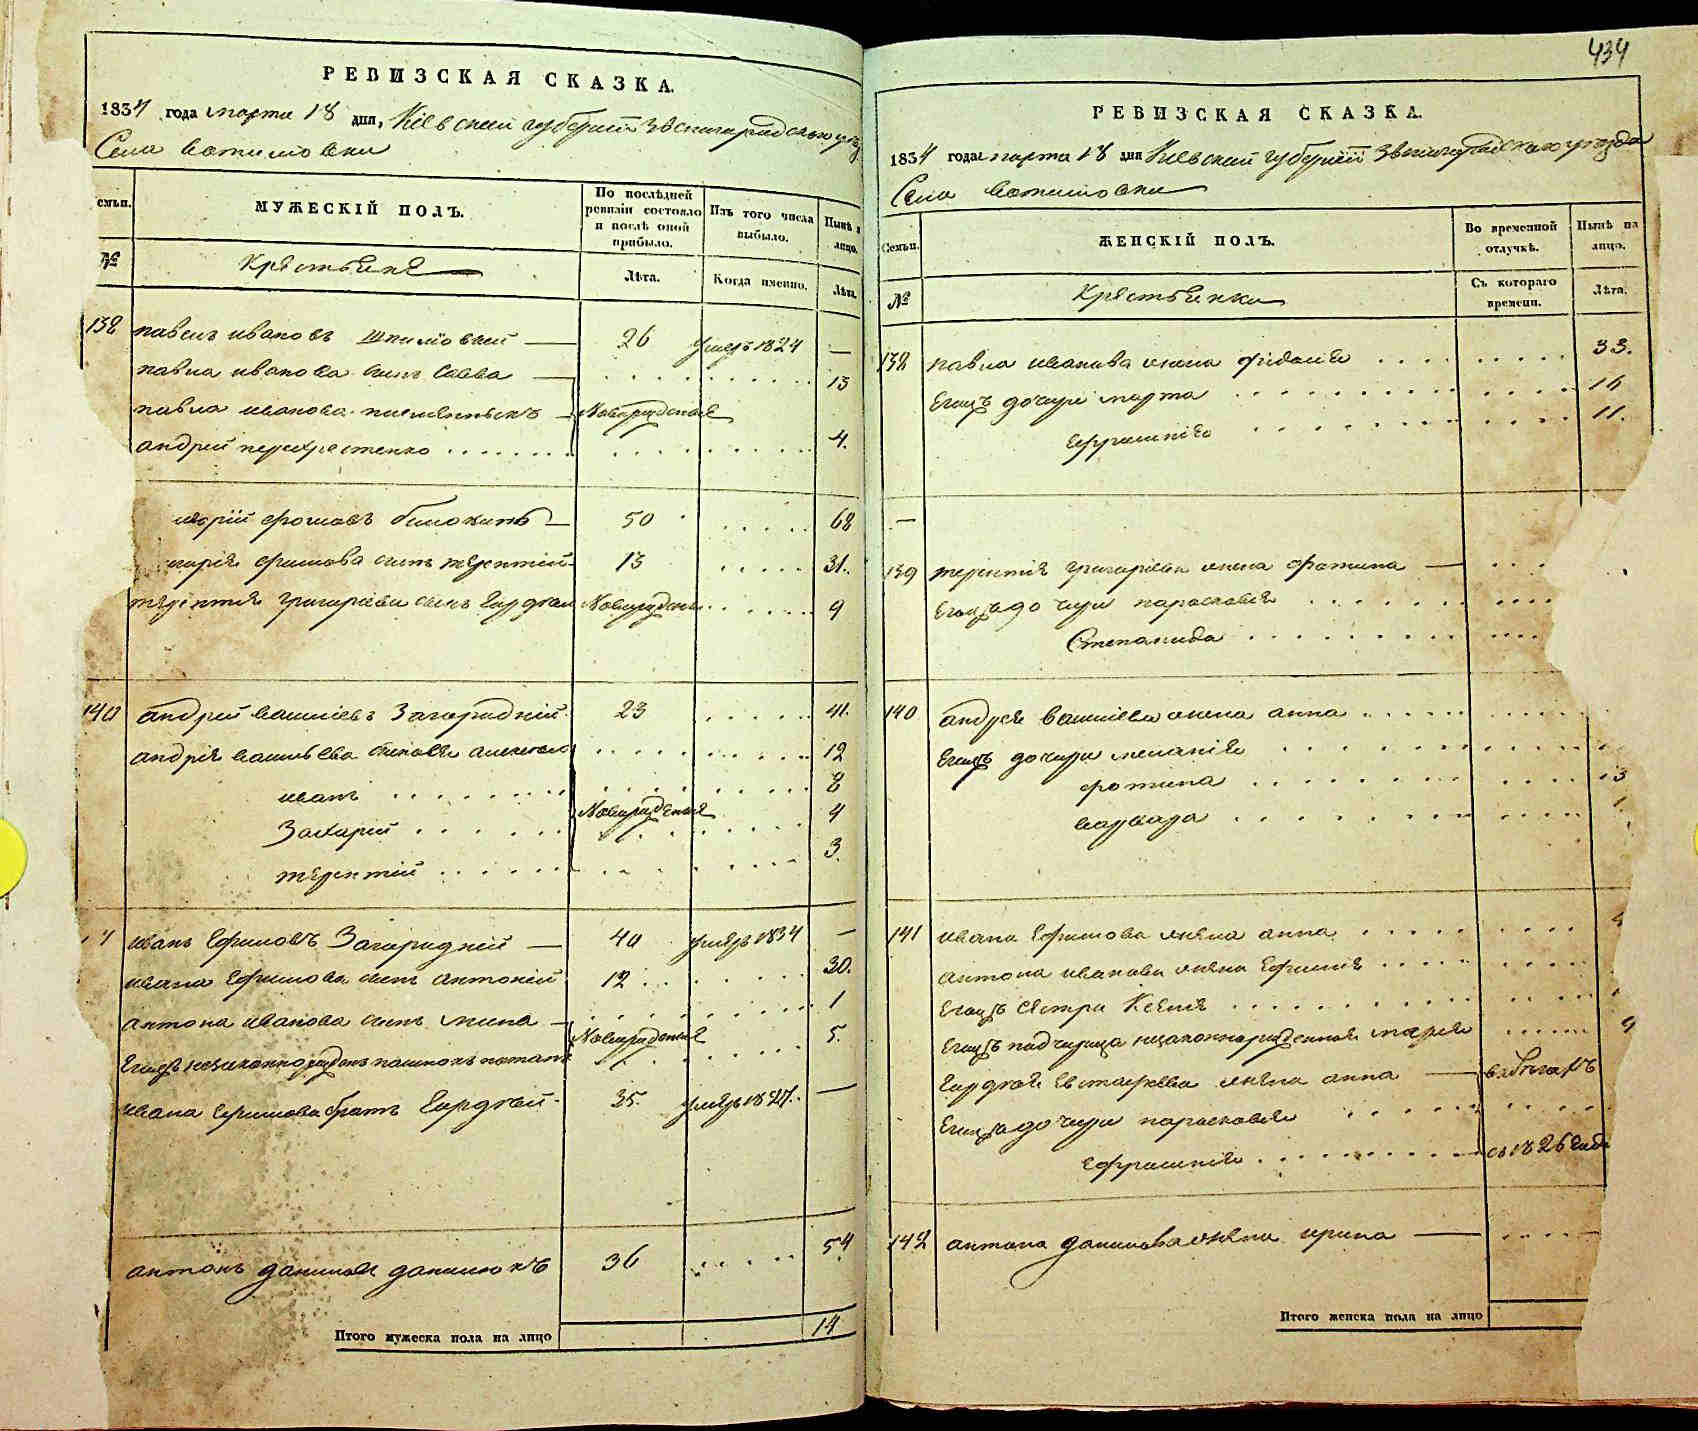 РЕВИЗСКАЯ СКАЗКА.
1834 года марта 18 дня, Кіевской губерніи Звенигородскаго
Села
Семьи.
МУЖЕСКІЙ ПОЛЪ.
По послѣдней ревизіи состояло и послѣ оной прибыло.
Изъ того числа выбыло.
Нынѣ на лицо.
№
Крестьяне
Лѣта.
Когда именно.
Лѣта.
138 павелъ ивановъ 26 умеръ 1824 —
павла иванова сынъ Савва 13
павла иванова племянникъ Новорожденные
андрей 4.
ефимовъ 50 68
ефимова сынъ терентій 13 31.
терентія григоріева сынъ Гордѣй Новорожден 9
140 андрей Василіевъ Загородній 23 41.
андрея васильева сыновья алексей 12
иванъ 8
Захарій Новорожденные 4
терентій 3.
иванъ Ефимовъ Загородній — 40 умеръ 1834 —
ивана Ефимова сынъ антоній 12 30.
антона иванова сынъ мина 1
Новорожденные
Егожъ незаконнорожденъ 5.
ивана ефимова братъ Гордѣй 35. умеръ 1827. —
антонъ даниловъ 36 54
Итого мужеска пола на лицо 14
434
РЕВИЗСКАЯ СКАЗКА.
1834 года марта 18 дня Кіевской губерніи Звенигородскаго уезда
Села
Семьи.
ЖЕНСКІЙ ПОЛЪ.
Во временной отлучкѣ.
Нынѣ на лицо.
№
Крестьянки
Съ котораго времени.
Лѣта.
138 павла иванова жена 33.
Егожъ дочери марта 16
Ефросинія 11.
139 терентія григоріева жена фотина
Егожъ дочери парасковія
Степанида
140 андрея Василіева жена анна
Егожъ дочери меланія
фотина
варвара
141 ивана Ефимова жена анна
антона иванова жена
Егожъ сестра Ксенія
Егожъ падчерица незаконнорожденная марія
Гордѣя жена анна — въ бѣгахъ
Егожъ дочери парасковія
Ефросинія съ 1826 года
142 антона данилова жена ирина
Итого женска пола на лицо